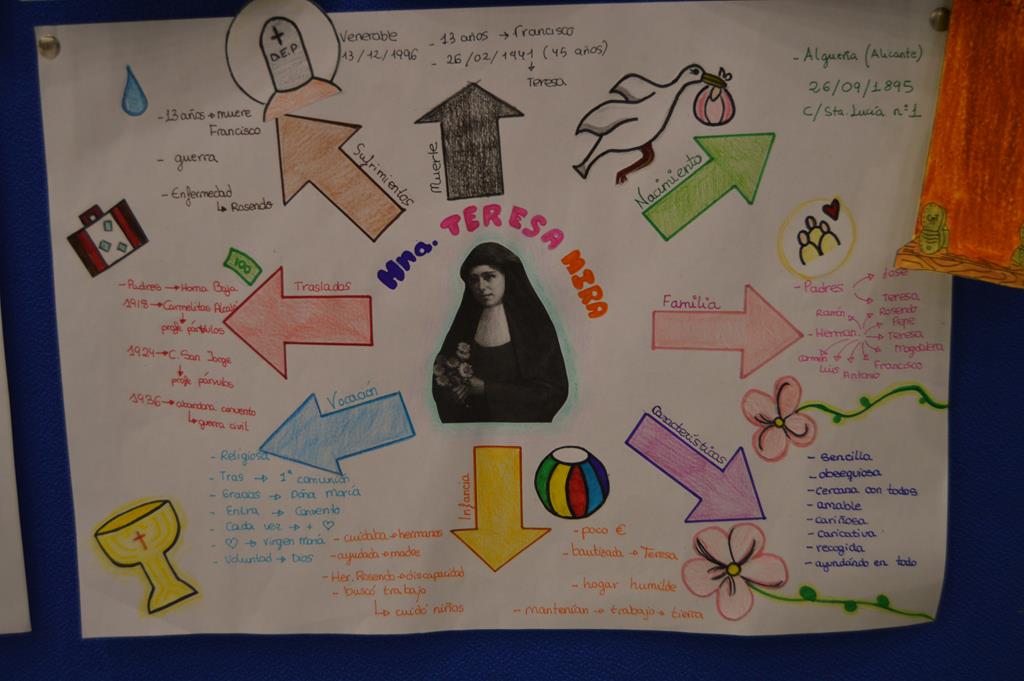 Hna. TERESA MIRA
D.E.P
Venerable
13/12/1996
- 13 años → Francisco
- 26/02/1941 (45 años)
↓
Teresa
Muerte
Nacimiento
- Algueña (Alicante)
26/09/1895
C/Sta. Lucía nº1
Sufrimientos
- 13 años → muere
Francisco
- guerra
- Enfermedad
↳ Rosendo
Traslados
100
- Padres → Homa Baja
1918 → Carmelitas Alcalá
↓
profe párvulos
1924 → C. San Jorge
↓
profe párvulos
1936 → abandona convento
↳ guerra civil
Familia
- Padres
José
Teresa
- Herman.
Rosendo
Pepe
Teresa
Magdalena
Francisco
Antonio
Luis
Carmen
Ramón
Vocación
- Religiosa
- Tras → 1ª comunión
- Gracias → Doña María
- Entra → Convento
- Cada vez → + ♡
- ♡ → Virgen María
- Voluntad → Dios
Infancia
- cuidaba → hermanos
- ayudada → madre
- Her. Rosendo → discapacidad
- buscó trabajo
↳ cuidó niños
- poco €
- bautizada → Teresa
- hogar humilde
- mantenían → trabajo → tierra
Características
- sencilla
- obsequiosa
- cercana con todos
- amable
- cariñosa
- caricativa
- recogida
- ayundándo en todo